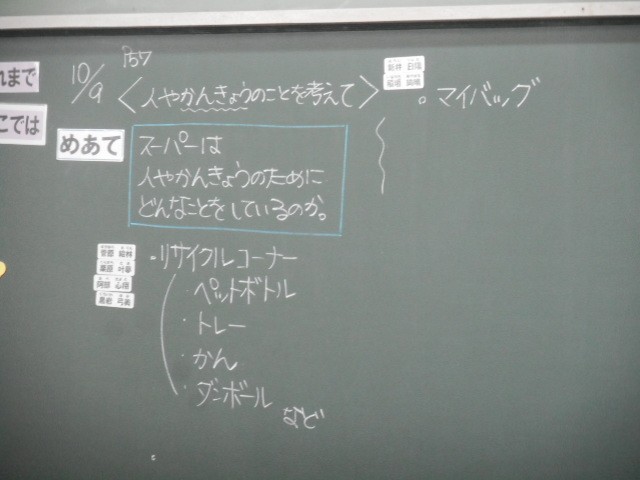 れまで
こでは
10/9
P57
〈人やかんきょうのことを考えて〉
めあて
スーパーは
人やかんきょうのために
どんなことをしているのか。
・リサイクルコーナー
・ペットボトル
・トレー
・かん
・ダンボール
など
。マイバッグ